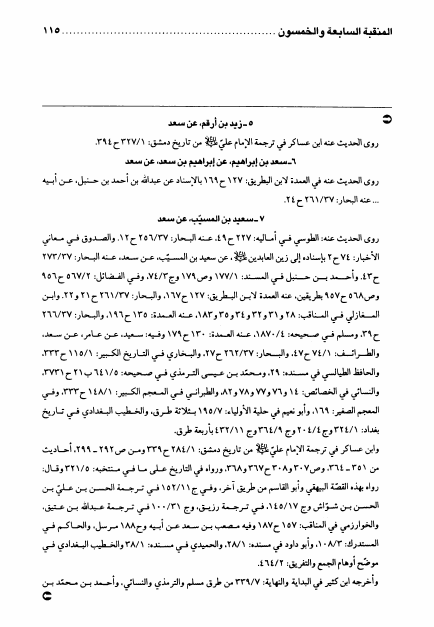 المنقبة السابعة والخمسون ........................................................ ١١٥
٥ـ زيد بن أرقم، عن سعد
روى الحديث عنه ابن عساكر في ترجمة الإمام عليّ من تاريخ دمشق: ٣٢٧/١ ح٣٩٤.
٦ـ سعد بن إبراهيم، عن إبراهيم بن سعد، عن سعد
روى الحديث عنه في العمدة لابن البطريق: ١٢٧ ح١٦٩ بالإسناد عن عبدالله بن أحمد بن حنبل، عـن أبيه
... عنه البحار: ٢٦١/٣٧ ح٢٤.
٧ـ سعيد بن المسيّب، عن سعد
روى الحديث عنه: الطوسي في أماليه: ٢٢٧ ح٤٩، عـنه البحار: ٢٥٦/٣٧ ح١٢. والصدوق فـي معاني
الأخبار: ٧٤ ح٢ بإسناده إلى زين العابدين، عن سعيد بن المسيّب، عـن سعد، عـنه البحار: ٢٧٣/٣٧
ح٤٣. وأحمـد بــن حنبـل فـي المسند: ١٧٧/١ وص١٧٩ وج٧٤/٣، وفـي الفضائل: ٥٦٧/٢ ح٩٥٦
وص٥٦٨ ح٩٥٧ بطريقين، عنه العمدة لابـن البطريق: ١٢٧ ح١٦٧، والبحار: ٢٦١/٣٧ ح٢١ و٢٢. وابن
المغازلي في المناقب: ٢٨ و٣١ و٣٢ و٣٤ و٣٥ و١٨٣، عـنه العمدة: ١٣٥ ح١٩٦، والبحار: ٢٦٦/٣٧
ح٣٩. ومسلم فـي صحيحه: ١٨٧٠/٤، عـنه العمدة: ١٣٠ ح١٧٩ وفيه: سعيد، عن عامر، عن سعد،
والطـرائـف: ٧٤/١ ح٤٧، والبحـار: ٢٦٢/٣٧ ح٢٧. والبخاري فـي التـاريخ الكبير: ١١٥/١ ح٣٣٣.
والحافظ الطيالسي في مسنده: ٢٩. ومحمّـد بـن عيسى الترمذي في صحيحه: ٦٤١/٥ ب٢١ ح٣٧٣١.
والنسائي في الخصائص: ١٤ و٧٦ و٧٧ و٧٨ و٨٢. والطبراني فـي المعجم الكبير: ١٤٨/١ ح٣٣٣، وفـي
المعجم الصغير: ١٦٩. وأبو نعيم في حلية الأولياء: ١٩٥/٧ بـثلاثة طـرق. والخطيب البغدادي في تـاريخ
بغداد: ٣٢٤/١ وج٢٠٤/٤ وج٣٦٤/٩ وج٤٣٢/١١ بأربعة طرق.
وابن عساكر في ترجمة الإمام عليّ من تاريخ دمشق: ٢٨٤/١ ح٣٣٩ ومـن ص٢٩٢ ـ ٢٩٩، أحاديث
من ٣٥١ ـ ٣٦٤، وص٣٠٧ و٣٠٨ ح٣٦٧ و٣٦٨. ورواه في التاريخ على مـا فـي منتخبه: ٣٢١/٥ وقال:
رواه بهذه القصّة البيهقي وأبو القاسم من طريق آخر، وفـي ج١٥٢/١١ فـي تـرجمة الحسن بـن عليّ بـن
الحسن بـن شـوّاش وج١٤٥/١٧، فـي ترجمة رزيـق، وج١٠٠/٣١ فـي ترجمة عبدالله بـن عتيق.
والخوارزمي في المناقب: ١٥٧ ح١٨٧ وفيه مـصعب بـن سعد عن أبيه وح١٨٨ مرسل. والحاكـم فـي
المستدرك: ١٠٨/٣. وأبو داود في مسنده: ٢٨/١. والحميدي فـي مسنده: ٣٨/١. والخطيب البغدادي في
موضّح أوهام الجمع والتفريق: ٤٦٤/٢.
وأخرجه ابن كثير في البداية والنهاية: ٣٣٩/٧ من طرق مسلم والترمذي والنسائي، وأحمـد بـن محمّد بن